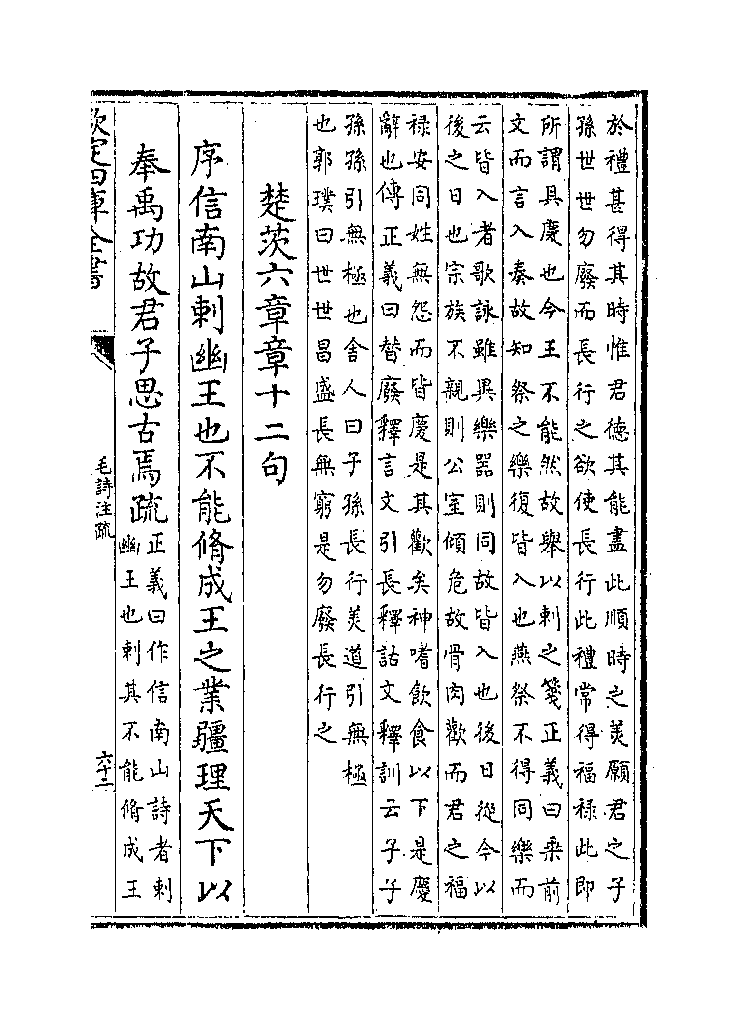 於禮甚得其時惟君德其能盡此順時之美願君之子
孫世世勿廢而長行之欲使長行此禮常得福禄此即
所謂具慶也今王不能然故舉以刺之箋正義曰乗前
文而言入奏故知祭之樂復皆入也燕祭不得同樂而
云皆入者歌詠雖異樂器則同故皆入也後日從今以
後之日也宗族不親則公室傾危故骨肉歡而君之福
禄安同姓無怨而皆慶是其歡矣神嗜飲食以下是慶
辭也傳正義曰替廢釋言文引長釋詁文釋訓云子子
孫孫引無極也舍人曰子孫長行美道引無極
也郭璞曰世世昌盛長無窮是勿廢長行之
楚茨六章章十二句
序信南山刺幽王也不能脩成王之業疆理天下以
奉禹功故君子思古焉疏正義曰作信南山詩者刺
幽王也刺其不能脩成王
欽定四庫全書
毛詩注疏
六十二